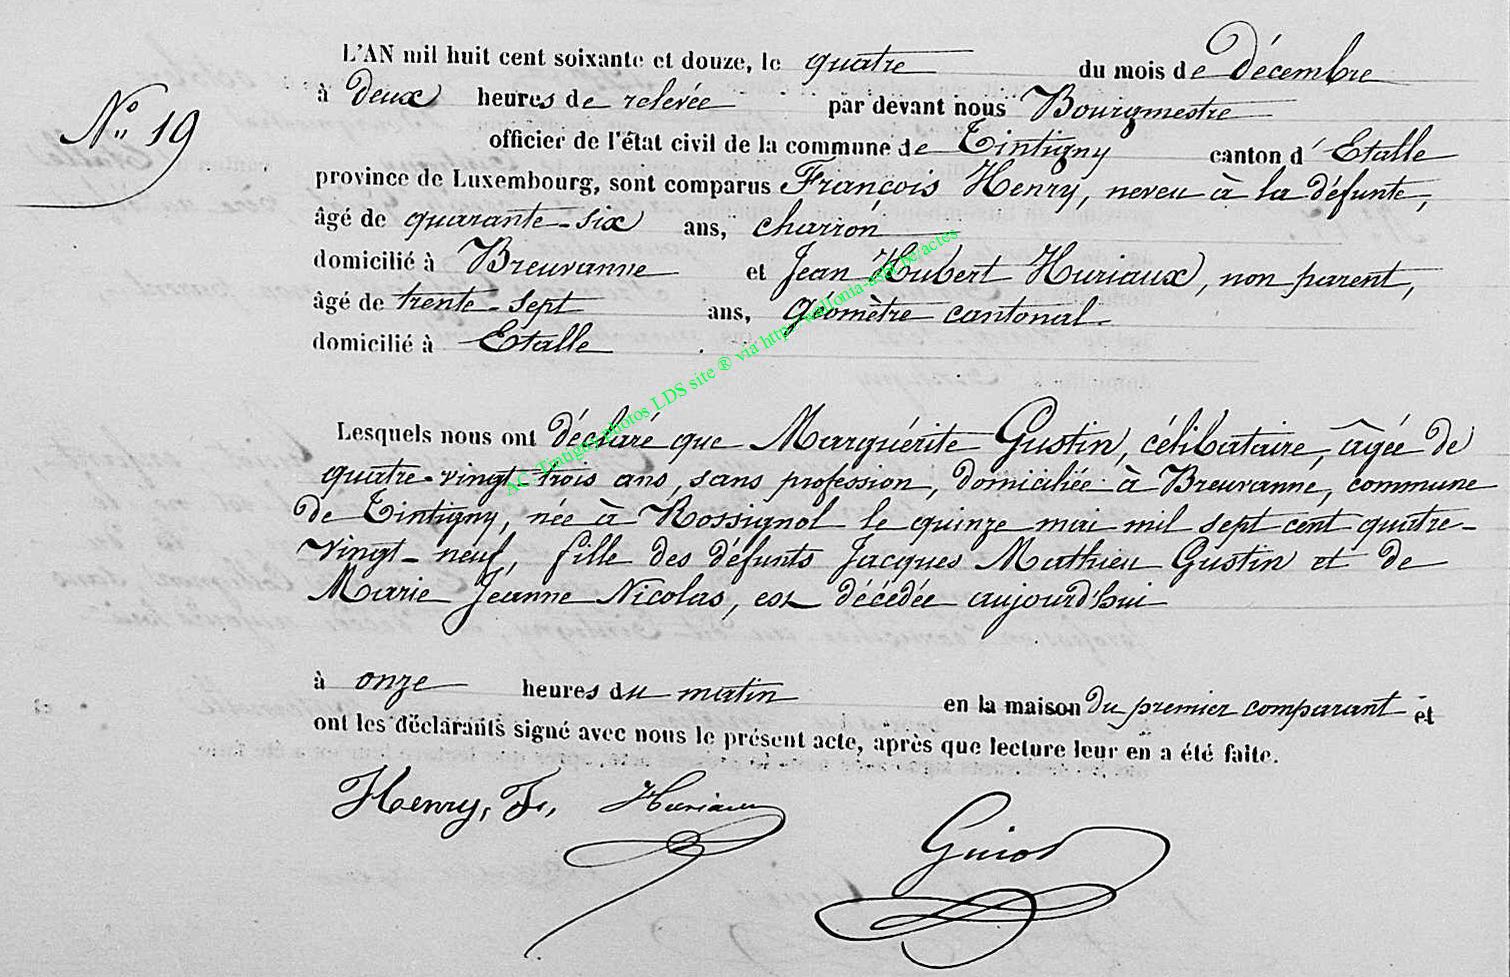 L'AN mil huit cent soixante et douze, le quatre du mois de Décembre
N° 19
à Deux heures de relevée par devant nous Bourgmestre
officier de l'état civil de la commune de Tintigny canton d'Etalle
province de Luxembourg, sont comparus François Henry, neveu à la défunte,
âgé de quarante-six ans, charron
domicilié à Breuvanne et Jean Hubert Huriaux, non parent,
âgé de trente-sept ans, Géomètre cantonal
domicilié à Etalle
Lesquels nous ont déclaré que Marguérite Gustin, célibataire, âgée de
quatre-vingt-trois ans, sans profession, domiciliée à Breuvanne, commune
de Tintigny, née à Rossignol le quinze mai mil sept cent quatre-
vingt-neuf, fille des défunts Jacques Mathieu Gustin et de
Marie Jeanne Nicolas, est décédée aujourd'hui
à onze heures du matin en la maison du premier comparant et
ont les déclarants signé avec nous le présent acte, après que lecture leur en a été faite.
Henry, F, Huriaux Guiot
AC Tintigny photos LDS site ® via